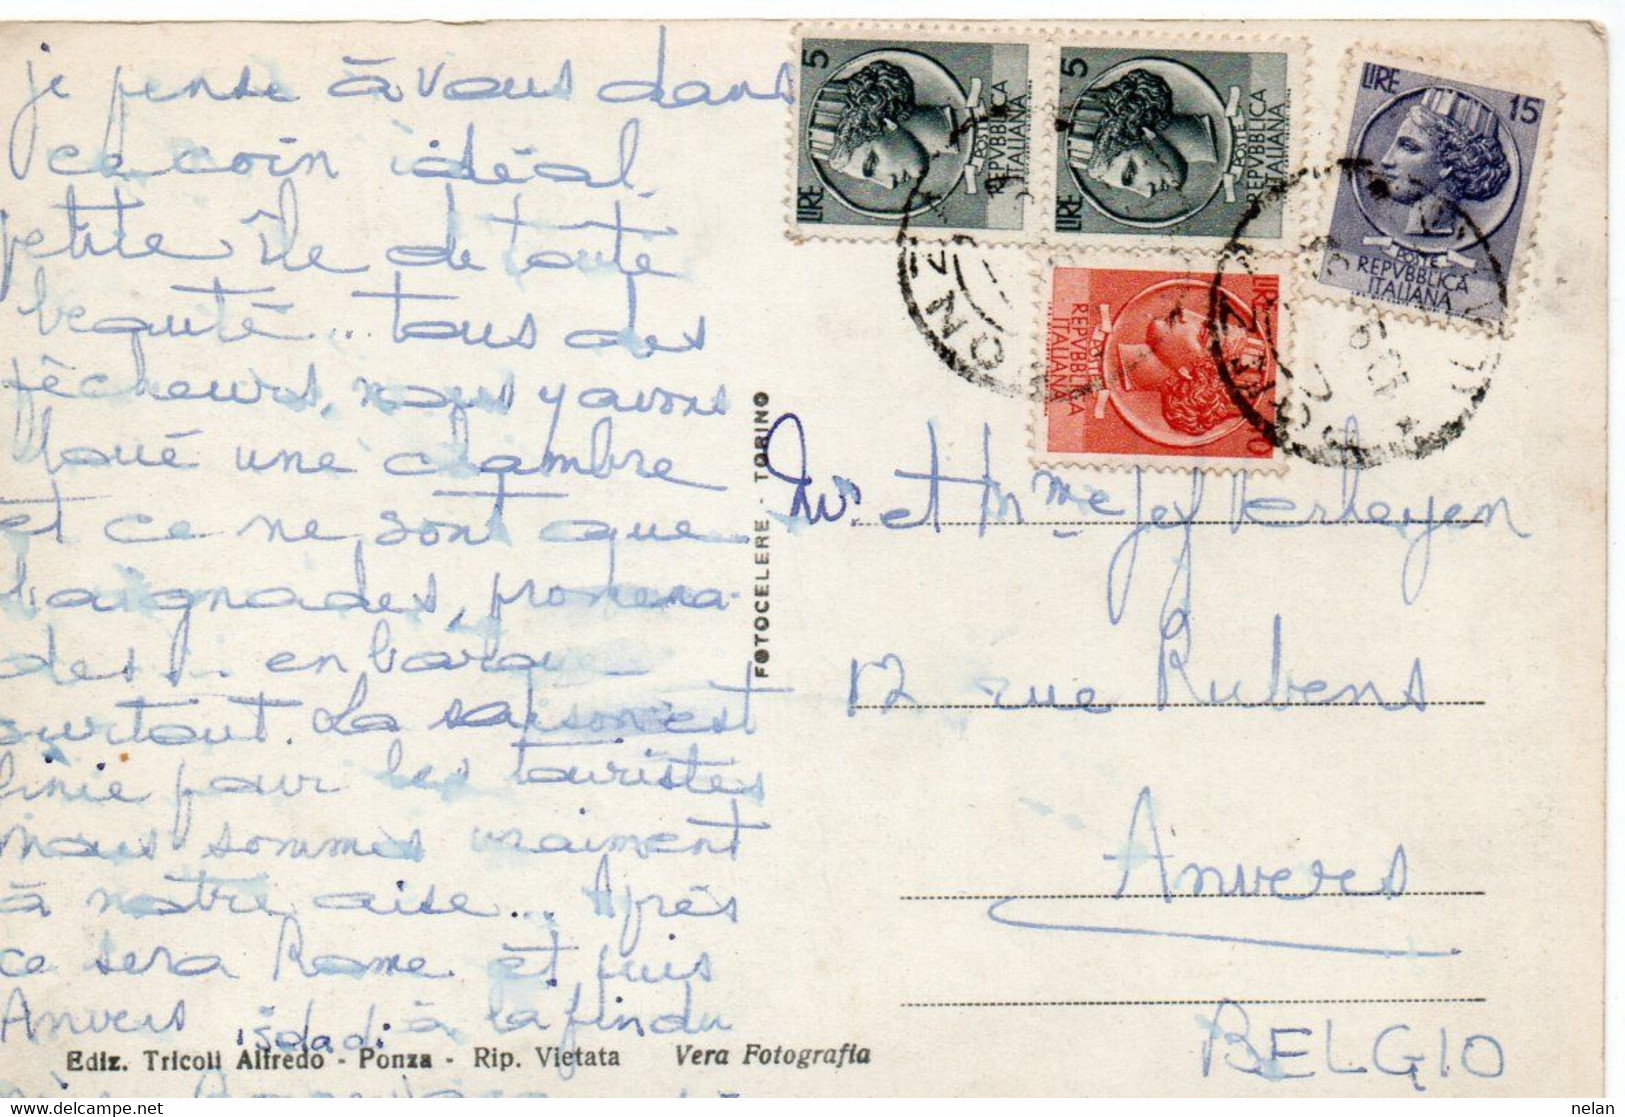 je pense à vous dans
ce coin idéal,
petite île de toute
beauté... tous des
pêcheurs, nous y avons
loué une chambre
et ce ne sont que
baignades, promena-
des... en barque
surtout. La saison est
finie pour les touristes
nous sommes vraiment
à notre aise... Après
ce sera Rome et puis
Anvers à la fin du
Ediz. Tricoli Alfredo - Ponza - Rip. Vietata Vera Fotografia
FOTOCELERE - TORINO
LIRE 5 POSTE REPVBBLICA ITALIANA
LIRE 5 POSTE REPVBBLICA ITALIANA
LIRE 15 POSTE REPVBBLICA ITALIANA
LIRE POSTE REPVBBLICA ITALIANA
Mr. et Mme Jef Verheyen
12 rue Rubens
Anvers
BELGIO
nelan